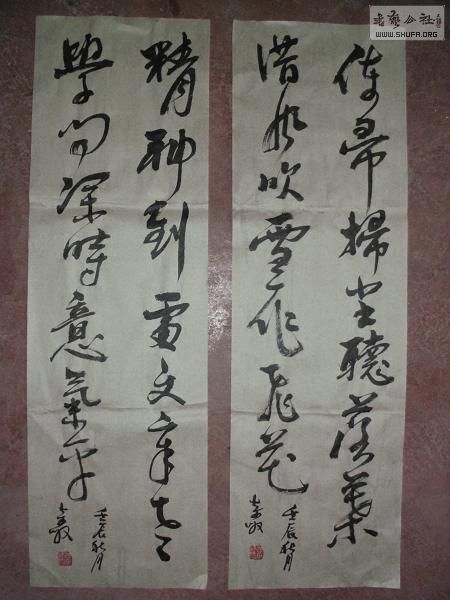 書藝公社
WWW.SHUFA.ORG
使帚掃尘聽落葉
借風吹雪作飛花
壬辰秋月
精神到處文章老
學問深時意氣平
壬辰秋月